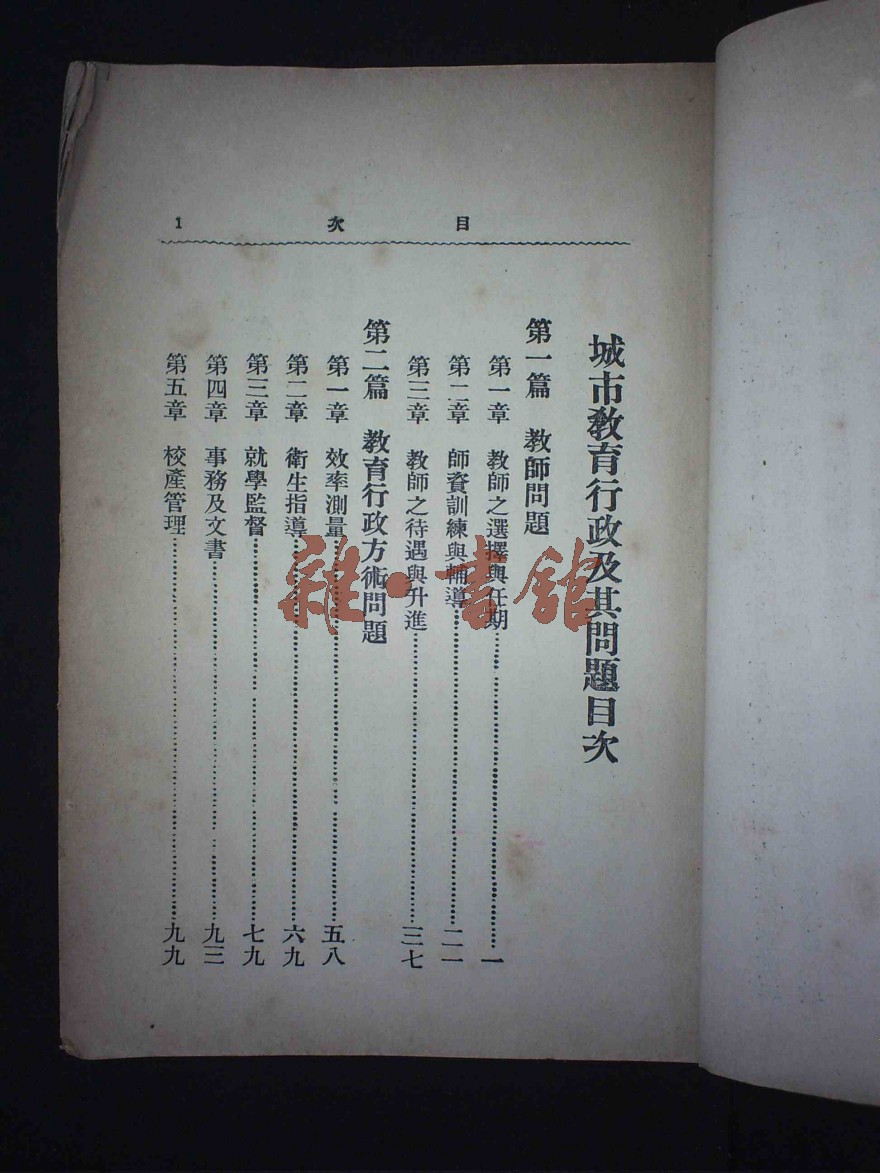 目次 1
城市教育行政及其問題目次
第一篇 教師問題
第一章 教師之選擇與任期 一
第二章 師資訓練與輔導 二一
第三章 教師之待遇與升進 三七
第二篇 教育行政方術問題
第一章 效率測量 五八
第二章 衛生指導 六九
第三章 就學監督 七九
第四章 事務及文書 九三
第五章 校產管理 九九
雜·書館